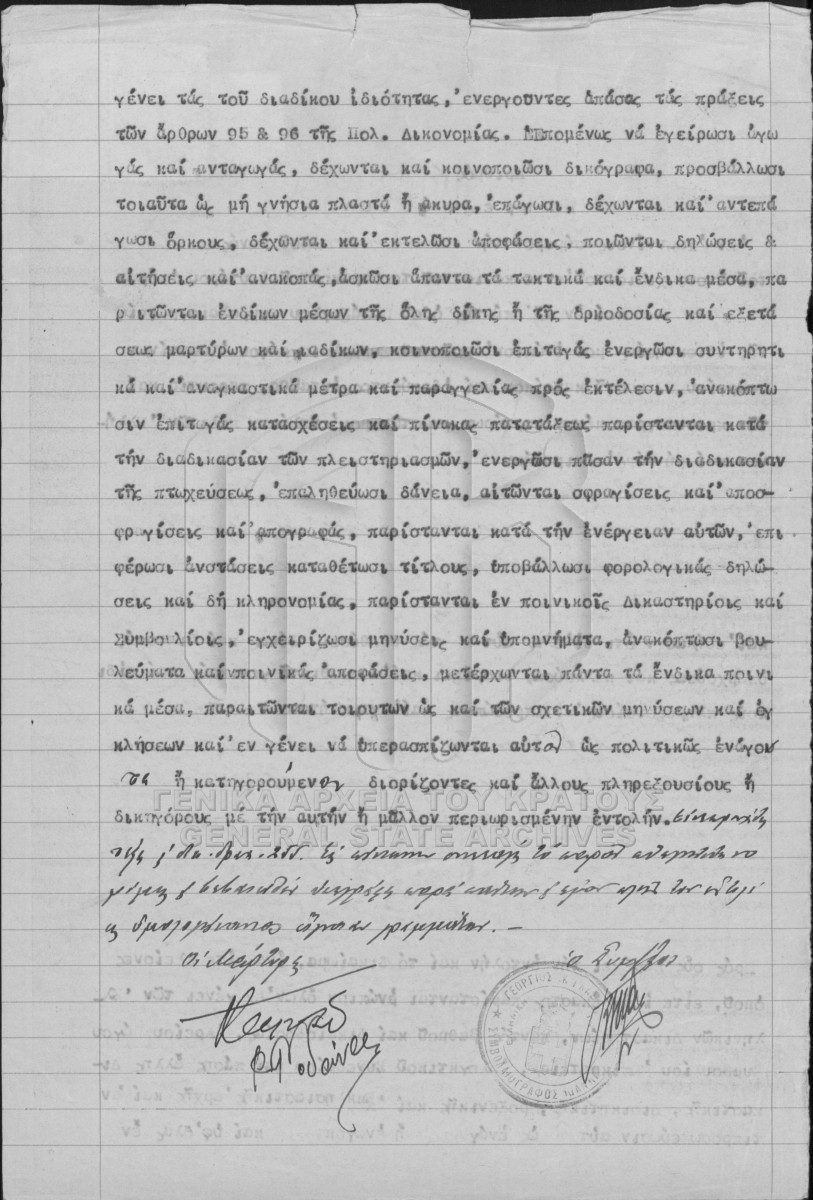 γένει τάς τοῦ διαδίκου ἰδιότητας, ἐνεργοῦντες ἁπάσας τάς πράξεις
τῶν ἄρθρων 95 & 96 τῆς Πολ. Δικονομίας. Ἑπομένως νά ἐγείρωσι ἀγω
γάς καί ανταγωγάς, δέχωνται καί κοινοποιῶσι δικόγραφα, προσβάλλωσι
τοιαῦτα ὡς μή γνήσια πλαστά ἤ ἀκυρα, ἐπάγωσι, δέχωνται καί ἀντεπά
γωσι ὅρκους, δέχωνται καί ἐκτελῶσι ἀποφάσεις, ποιῶνται δηλώσεις &
αἰτήσεις καί ἀνακοπάς, ἀσκῶσι ἅπαντα τά τακτικά καί ἔνδικα μέσα, πα
ραιτῶνται ἐνδίκων μέσων τῆς ὅλης δίκης ἤ τῆς ὁρκοδοσίας καί εξετά
σεως μαρτύρων καί διαδίκων, κοινοποιῶσι ἐπιταγάς ἐνεργῶσι συντηρητι
κά καί ἀναγκαστικά μέτρα καί παραγγελίας πρός ἐκτέλεσιν, ἀνακόπτω
σιν ἐπιταγάς κατασχέσεις καί πίνακας πατατάξεως παρίστανται κατά
τήν διαδικασίαν τῶν πλειστηριασμῶν, ἐνεργῶσι πᾶσαν τήν διαδικασίαν
τῆς πτωχεύσεως, ἐπαληθεύωσι δάνεια, αἰτῶνται σφραγίσεις καί ἀποσ-
φραγίσεις καί ἀπογραφάς, παρίστανται κατά τήν ἐνέργειαν αὐτῶν, ἐπι
φέρωσι ἀνστάσεις καταθέτωσι τίτλους, ὑποβάλλωσι φορολογικάς δηλώ-
σεις καί δή κληρονομίας, παρίστανται ἐν ποινικοῖς Δικαστηρίοις καί
Συμβουλίοις, ἐγχειρίζωσι μηνύσεις καί ὑπομνήματα, ἀνακόπτωσι βου-
λεύματα καί ποινικάς ἀποφάσεις, μετέρχωνται πάντα τά ἔνδικα ποινι
κά μέσα, παραιτῶνται τοιουτων ὡς καί τῶν σχετικῶν μηνύσεων καί ἐγ
κλήσεων καί ἐν γένει νά ὑπερασπίζωνται αὐτόν ὡς πολιτικῶς ἐνάγον
τα ἤ κατηγορούμενον διορίζοντες καί ἄλλους πληρεξουσίους ἤ
δικηγόρους μέ τήν αυτήν ἤ μᾶλλον περιωρισμένην ἐντολήν.
ΓΕΝΙΚΑ ΑΡΧΕΙΑ ΤΟΥ ΚΡΑΤΟΥΣ
GENERAL STATE ARCHIVES
Οἱ Μάρτυρες
ὁ Συμ/φος
ΓΕΩΡΓΙΟΣ
ΣΥΜΒΟΛΑΙΟΓΡΑΦΟΣ